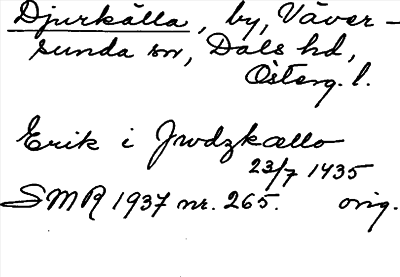 Djurkälla, by, Väver-
sunda sn, Dals hd,
Österg. l.
Erik i Jwdzkællo
23/7 1435
SMR 1937 nr. 265. orig.